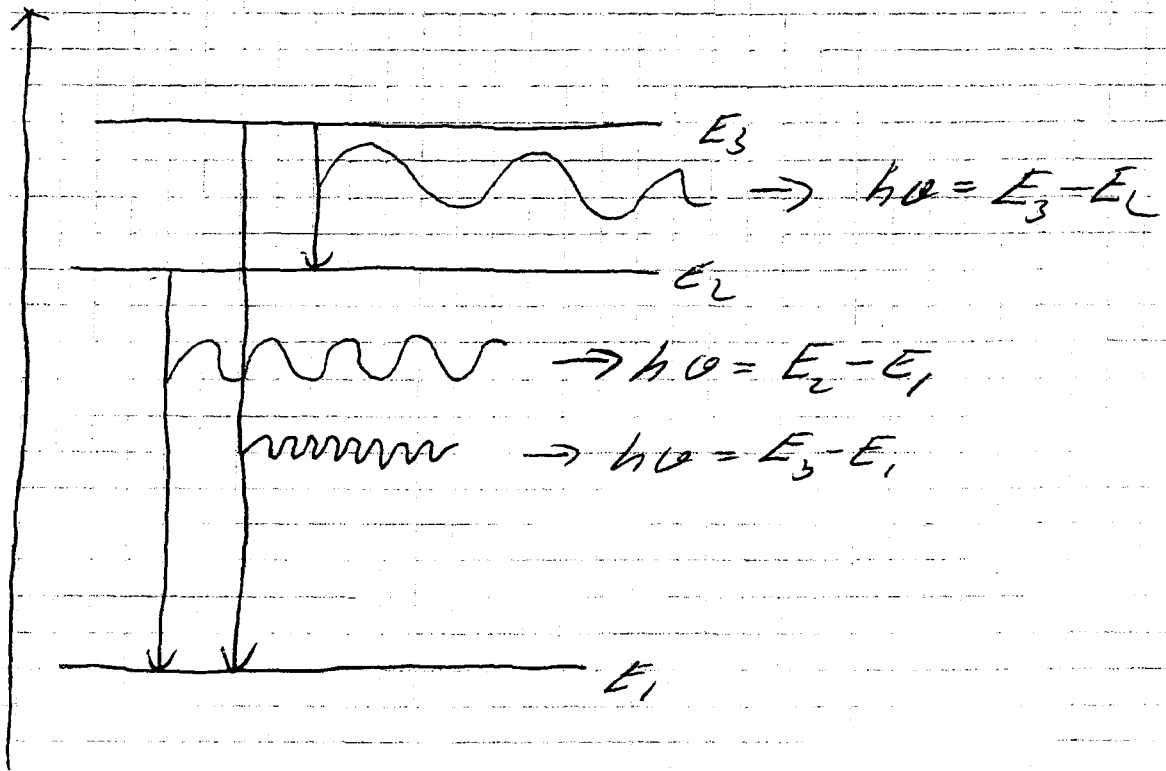 E₃
→ hν = E₃ − E₂
E₂
→ hν = E₂ − E₁
→ hν = E₃ − E₁
E₁